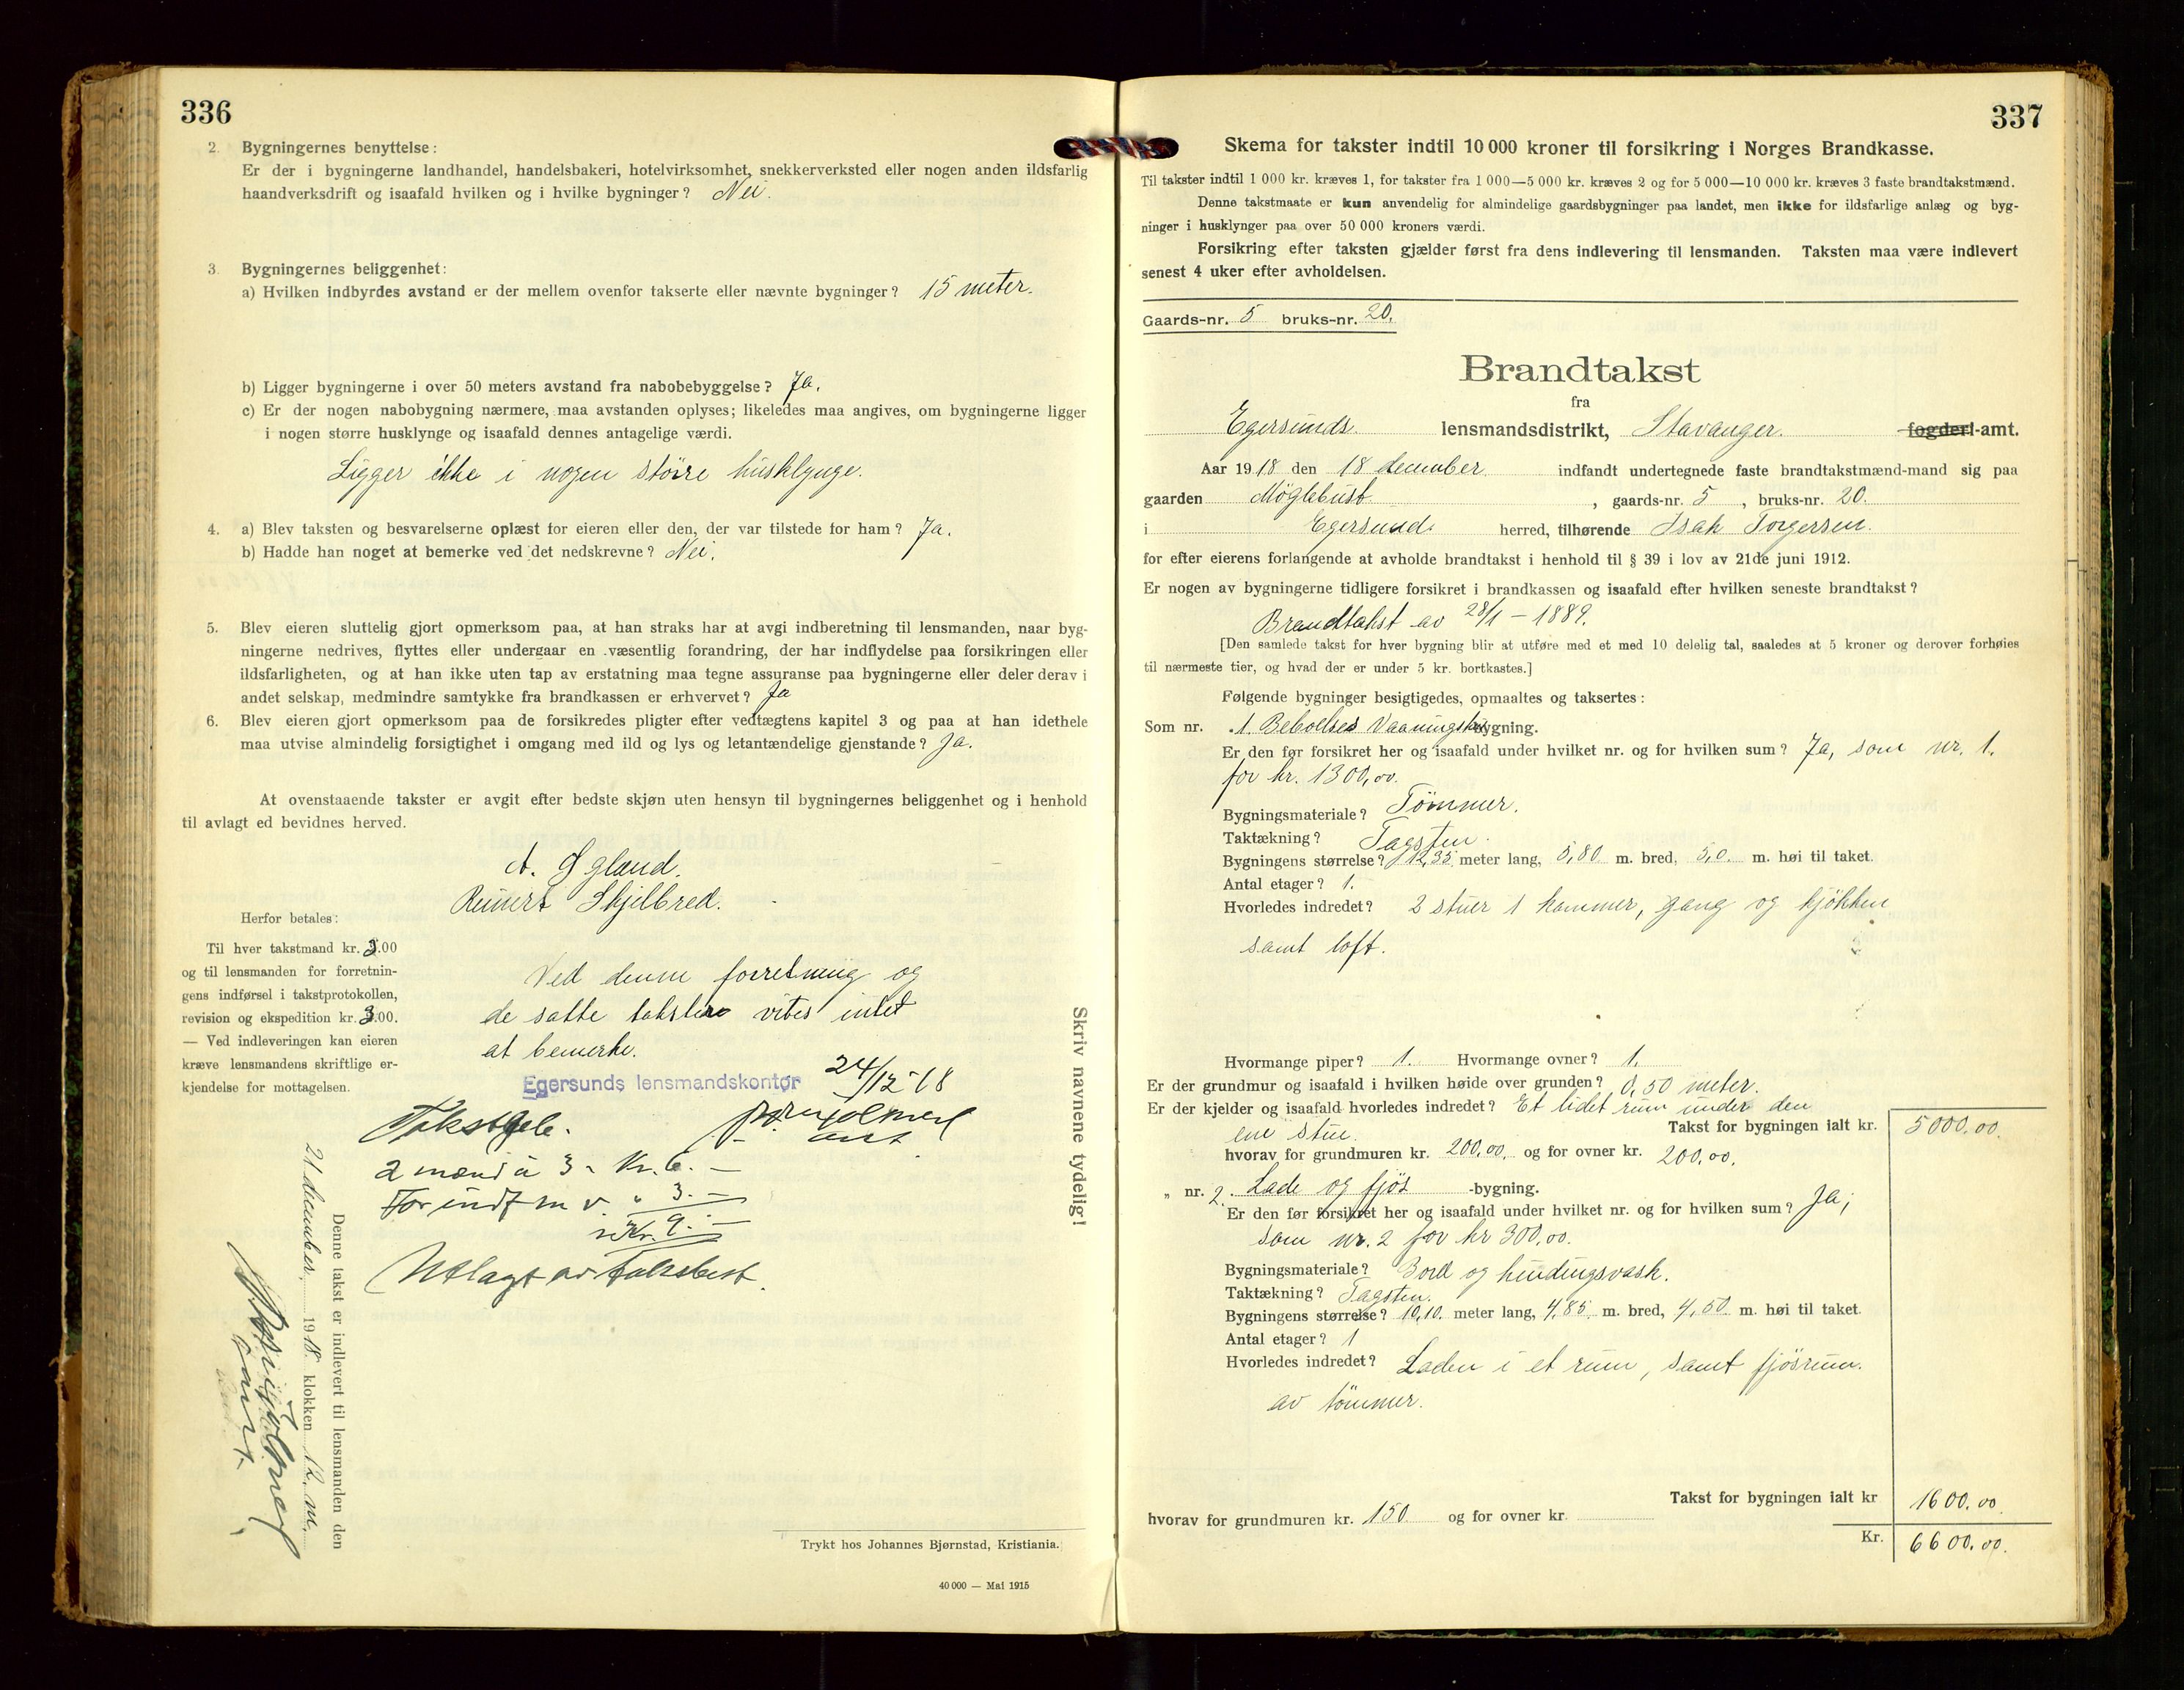 336
2. Bygningernes benyttelse:
Er der i bygningerne landhandel, handelsbakeri, hotelvirksomhet, snekkerverksted eller nogen anden ildsfarlig
haandverksdrift og isaafald hvilken og i hvilke bygninger? Nei.
3. Bygningernes beliggenhet:
a) Hvilken indbyrdes avstand er der mellem ovenfor takserte eller nævnte bygninger? 15 meter.
b) Ligger bygningerne i over 50 meters avstand fra nabobebyggelse? Ja.
c) Er der nogen nabobygning nærmere, maa avstanden oplyses; likeledes maa angives, om bygningerne ligger
i nogen større husklynge og isaafald dennes antagelige værdi.
Ligger ikke i nogen större husklynge.
4. a) Blev taksten og besvarelserne oplæst for eieren eller den, der var tilstede for ham? Ja.
b) Hadde han noget at bemerke ved det nedskrevne? Nei.
5. Blev eieren sluttelig gjort opmerksom paa, at han straks har at avgi indberetning til lensmanden, naar byg-
ningerne nedrives, flyttes eller undergaar en væsentlig forandring, der har indflydelse paa forsikringen eller
ildsfarligheten, og at han ikke uten tap av erstatning maa tegne assuranse paa bygningerne eller deler derav i
andet selskap, medmindre samtykke fra brandkassen er erhvervet? Ja
6. Blev eieren gjort opmerksom paa de forsikredes pligter efter vedtægtens kapitel 3 og paa at han idethele
maa utvise almindelig forsigtighet i omgang med ild og lys og letantændelige gjenstande? Ja.
At ovenstaaende takster er avgit efter bedste skjøn uten hensyn til bygningernes beliggenhet og i henhold
til avlagt ed bevidnes herved.
A. Egland.
Reinert Skjelbred.
Herfor betales:
Til hver takstmand kr. 3.00
og til lensmanden for forretnin-
gens indførsel i takstprotokollen,
revision og ekspedition kr. 3.00.
— Ved indleveringen kan eieren
kræve lensmandens skriftlige er-
kjendelse for mottagelsen.
Ved denne forretning og
de satte takster vites intet
at bemerke.
Egersunds lensmandskontor 24/12-18
Takstgele.
2 mænd à 3 - Kr. 6. —
For indf m v. " 3. —
Kr. 9. —
Utlagt av takstbest.
Denne takst er indlevert til lensmanden den
21 december 1918 klokken 12. m.
Skriv navnene tydelig!
Trykt hos Johannes Bjørnstad, Kristiania.
40 000 — Mai 1915
337
Skema for takster indtil 10 000 kroner til forsikring i Norges Brandkasse.
Til takster indtil 1 000 kr. kræves 1, for takster fra 1 000—5 000 kr. kræves 2 og for 5 000—10 000 kr. kræves 3 faste brandtakstmænd.
Denne takstmaate er kun anvendelig for almindelige gaardsbygninger paa landet, men ikke for ildsfarlige anlæg og byg-
ninger i husklynger paa over 50 000 kroners værdi.
Forsikring efter taksten gjælder først fra dens indlevering til lensmanden. Taksten maa være indlevert
senest 4 uker efter avholdelsen.
Gaards-nr. 5 bruks-nr. 20.
Brandtakst
fra
Egersunds lensmandsdistrikt, Stavanger fogderi-amt.
Aar 1918 den 18 december indfandt undertegnede faste brandtakstmænd-mand sig paa
gaarden Möglebust, gaards-nr. 5, bruks-nr. 20.
i Egersund herred, tilhørende Isak Torgersen.
for efter eierens forlangende at avholde brandtakst i henhold til § 39 i lov av 21de juni 1912.
Er nogen av bygningerne tidligere forsikret i brandkassen og isaafald efter hvilken seneste brandtakst?
Brandtakst av 28/1 - 1889.
[Den samlede takst for hver bygning blir at utføre med et med 10 delelig tal, saaledes at 5 kroner og derover forhøies
til nærmeste tier, og hvad der er under 5 kr. bortkastes.]
Følgende bygninger besigtigedes, opmaaltes og taksertes:
Som nr. 1. Beboelses Vaaningshusbygning.
Er den før forsikret her og isaafald under hvilket nr. og for hvilken sum? Ja, som nr. 1.
for kr. 1300,00.
Bygningsmateriale? Tömmer.
Taktækning? Tagsten.
Bygningens størrelse? 12,35 meter lang, 5,80 m. bred, 5,0 m. høi til taket.
Antal etager? 1.
Hvorledes indredet? 2 stuer 1 kammer, gang og kjökken
samt loft.
Hvormange piper? 1. Hvormange ovner? 1.
Er der grundmur og isaafald i hvilken høide over grunden? 0,50 meter.
Er der kjelder og isaafald hvorledes indredet? Et lidet rum under den
ene stue. Takst for bygningen ialt kr. 5000.00.
hvorav for grundmuren kr. 200,00. og for ovner kr. 200,00.
„ nr. 2. Lade og fjös -bygning.
Er den før forsikret her og isaafald under hvilket nr. og for hvilken sum? Ja,
som nr. 2 for kr 300,00.
Bygningsmateriale? Bord og bindingsværk.
Taktækning? Tagsten.
Bygningens størrelse? 10,10. meter lang, 4,85 m. bred, 4,50 m. høi til taket.
Antal etager? 1
Hvorledes indredet? Laden i et rum, samt fjösrum.
av tömmer.
Takst for bygningen ialt kr 1600.00
hvorav for grundmuren kr. 150 og for ovner kr.
Kr. 6600.00.